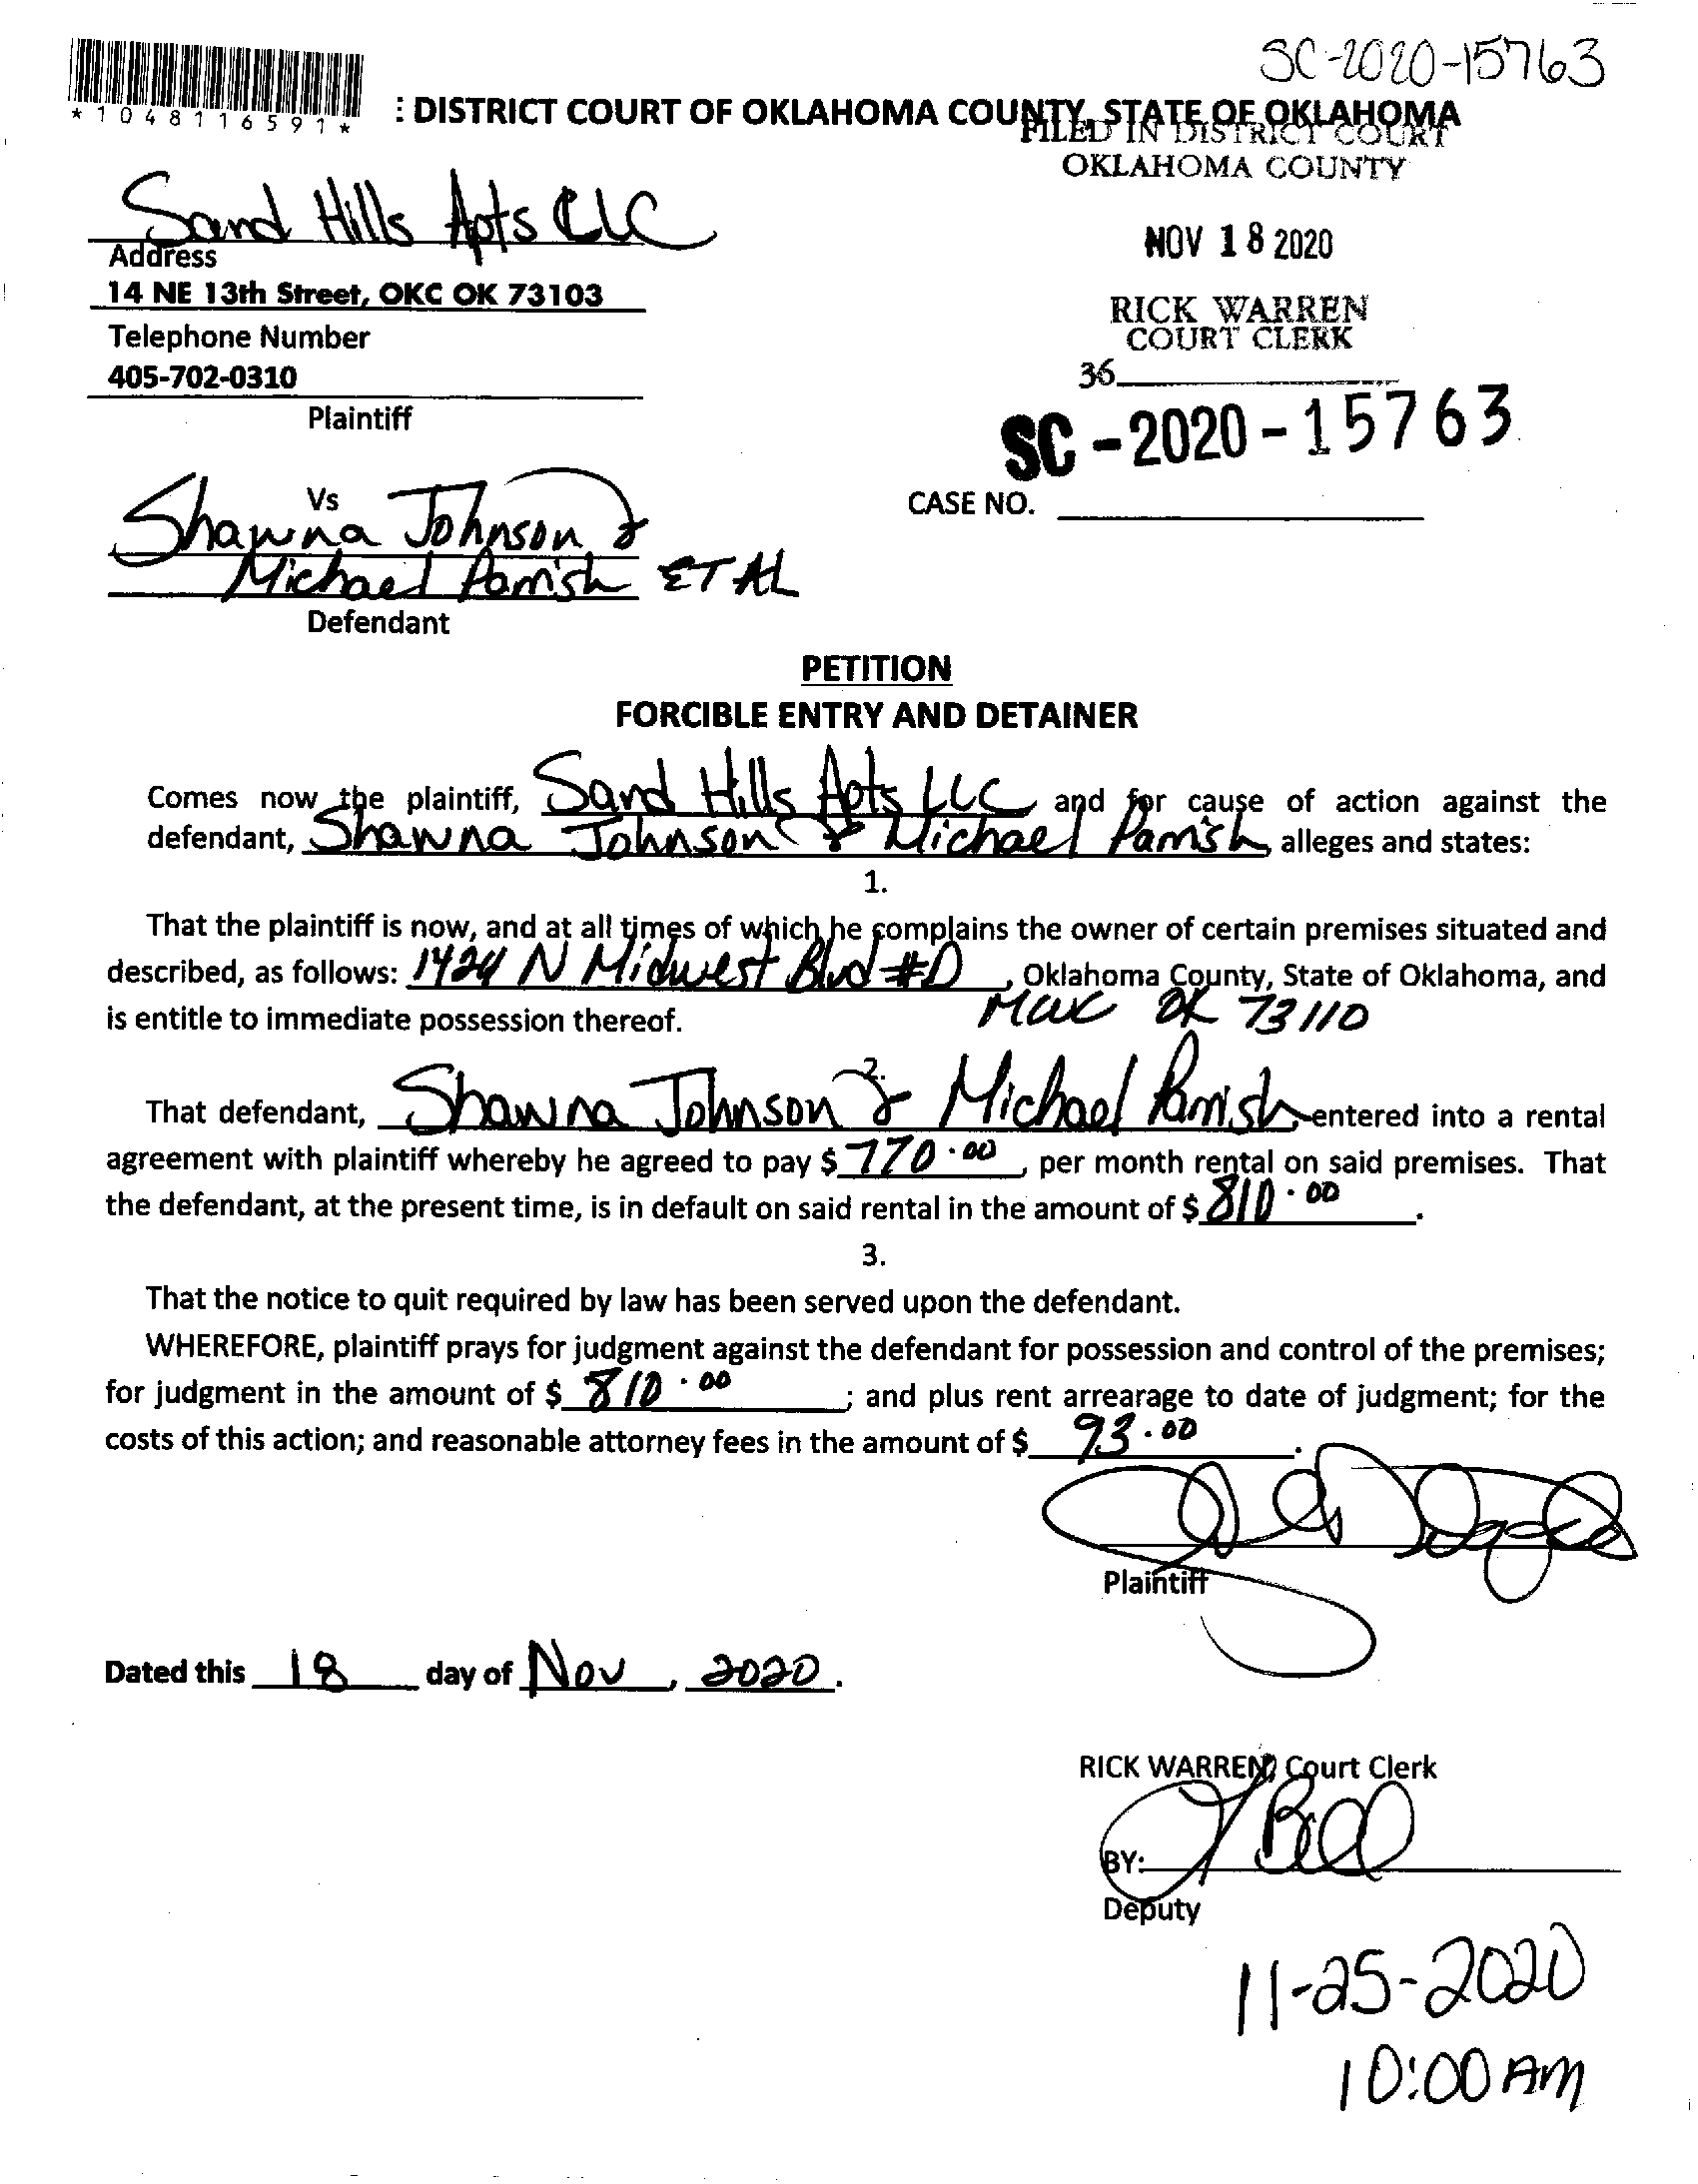 SC-2020-15763
*1048116591*
: DISTRICT COURT OF OKLAHOMA COUNTY, STATE OF OKLAHOMA
FILED IN DISTRICT COURT
OKLAHOMA COUNTY
Sand Hills Apts LLC
NOV 18 2020
Address
14 NE 13th Street, OKC OK 73103
RICK WARREN
COURT CLERK
Telephone Number
405-702-0310
36
Plaintiff
SC-2020-15763
Vs
CASE NO.
Shawna Johnson &
Michael Parrish ET AL
Defendant
PETITION
FORCIBLE ENTRY AND DETAINER
Comes now the plaintiff, Sand Hills Apts LLC and for cause of action against the
defendant, Shawna Johnson & Michael Parrish, alleges and states:
1.
That the plaintiff is now, and at all times of which he complains the owner of certain premises situated and
described, as follows: 1424 N Midwest Blvd #D, Oklahoma County, State of Oklahoma, and
is entitle to immediate possession thereof. MWC OK 73110
2.
That defendant, Shawna Johnson & Michael Parrish entered into a rental
agreement with plaintiff whereby he agreed to pay $ 770.00, per month rental on said premises. That
the defendant, at the present time, is in default on said rental in the amount of $ 810.00.
3.
That the notice to quit required by law has been served upon the defendant.
WHEREFORE, plaintiff prays for judgment against the defendant for possession and control of the premises;
for judgment in the amount of $ 810.00; and plus rent arrearage to date of judgment; for the
costs of this action; and reasonable attorney fees in the amount of $ 93.00.
Plaintiff
Dated this 18 day of Nov, 2020.
RICK WARREN, Court Clerk
BY:
Deputy
11-25-2020
10:00 AM